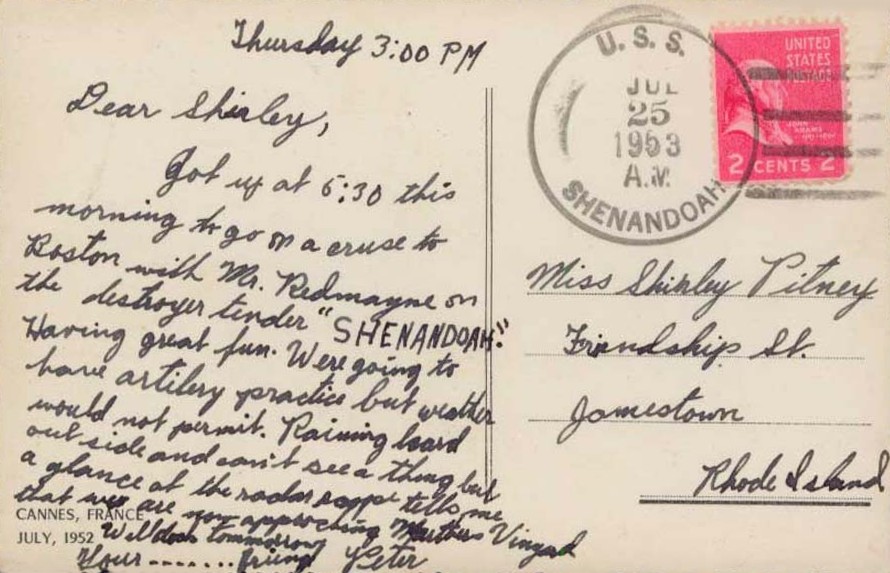 Thursday 3:00 PM
Dear Shirley,
Got up at 5:30 this
morning to go on a cruse to
Boston with Mr. Redmayne on
the destroyer tender "SHENANDOAH."
Having great fun. Were going to
have artilery practice but weather
would not permit. Raining hard
out side and can't see a thing but
a glance at the radar scope tells me
that we are now approcing Marthers Vinyard
CANNES, FRANCE
JULY, 1952
Your ........ friend Peter
U. S. S.
JUL
25
1953
A.M.
SHENANDOAH
UNITED
STATES
JOHN
ADAMS
2 CENTS 2
Miss Shirley Pitney
Friendship St.
Jamestown
Rhode Island